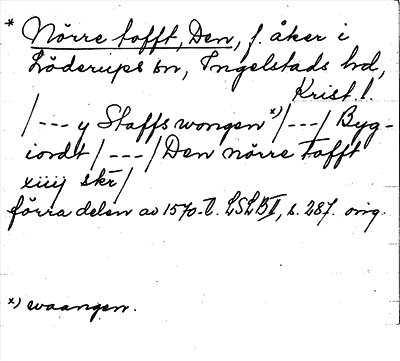 * Nörre tofft, Den, f. åker i
Löderups sn, Ingelstads hd,
Krist. l.
/--- y Staffs wongen x) /---/ Byg-
iordt /---/ Den nörre tofft
xiiij skr/
förra delen av 1570-t. LSLB II, s. 287. orig.
x) waangen.